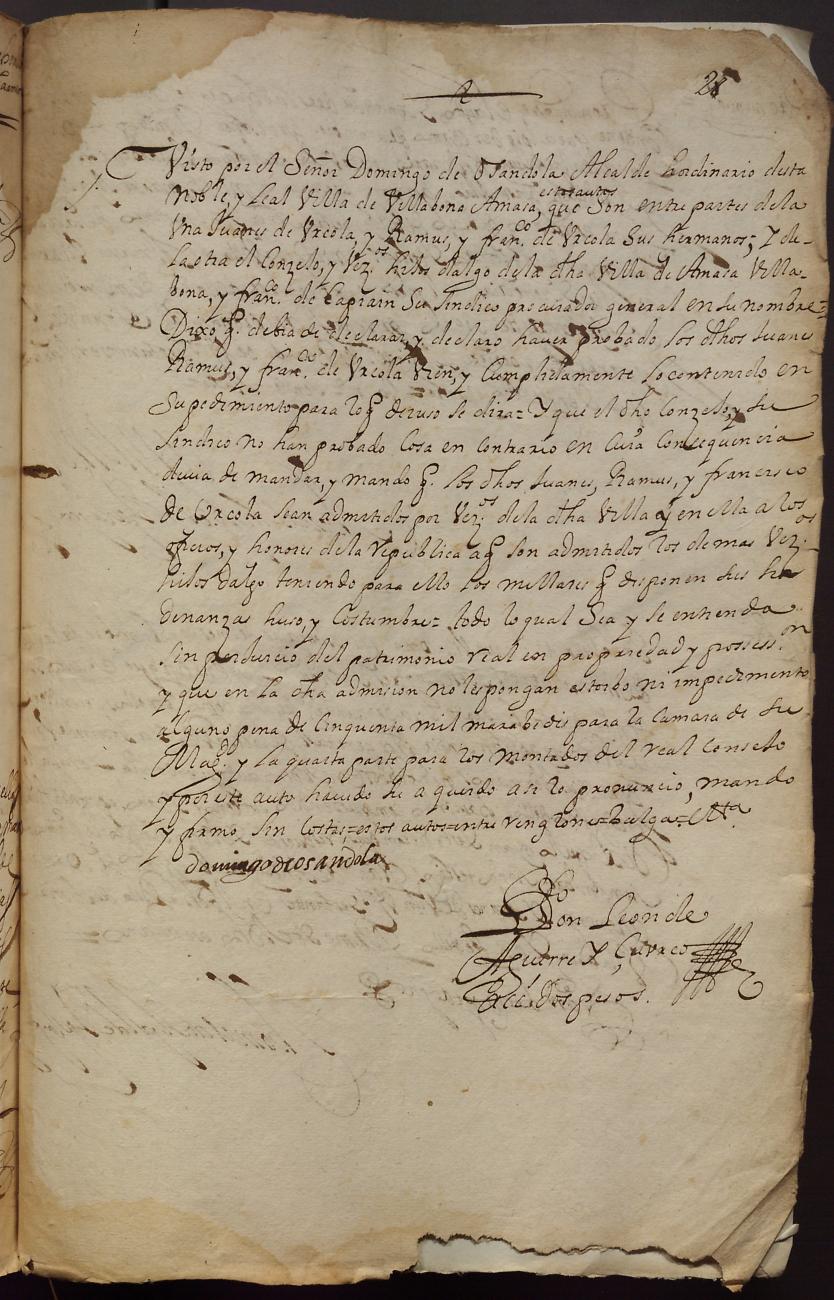 28
Visto por el Señor Domingo de Osandola Alcalde hordinario desta
Noble, y Leal Villa de Villabona Amasa, estos autos que Son entre partes dela
Vna Juanes de Vrcola, y Ramus, y fran.co de Vrcola Sus hermanos; Y de
La otra el Conzejo, y Vez.os hijos dalgo de la dha Villa de Amasa Villa-
bona, y fran.co de Capiain Su Sindico procurador general en su nombre=
Dixo q. debia de declarar, y declaro haver probado los dhos Juanes
Ramus, y fran.co de Vrcola Vien, y Cumplidamente lo contenido en
Su pedimiento para lo q deiuso se dira= Y que el dho Conzejo, y su
Sindico no han probado Cosa en contrario en Cuia Consequencia
deuia de mandar, y mando q. los dhos Juanes, Ramus, y francisco
de Vrcola sean admitidos por Vez.os de la dha Villa y en ella a los
oficios, y honores de la republica a q son admitidos los demas Vez.os
hijos dalgo teniendo para ello los millares q disponen sus hor
denanzas huso, y Costumbre= todo lo qual Sea y se entienda
sin perjuicio del patrimonio real en propriedad y posses.on
y que en la dha admision no les pongan estorbo ni impedimento
alguno pena de Cinquenta mil marabedis para la Camara de su
Mag.d y La quarta parte para los montados del real Consejo
y por este auto haviendo se a querido asi lo pronuncio, mando
y firmo, sin Costas= estos autos= entre renglones= Balga=
domingo de osandola
Don Leon de
Aguirre Y Çurco
Reci dos pesos.